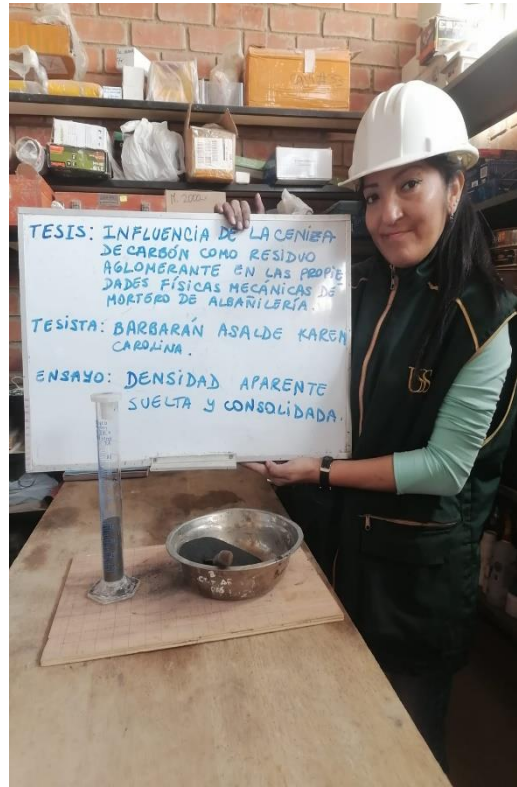 TESIS: INFLUENCIA DE LA CENIZA
DE CARBÓN COMO RESIDUO
AGLOMERANTE EN LAS PROPIE
DADES FÍSICAS MECÁNICAS DE
MORTERO DE ALBAÑILERÍA.
TESISTA: BARBARÁN ASALDE KAREN
CAROLINA.
ENSAYO: DENSIDAD APARENTE
SUELTA Y CONSOLIDADA.
USS